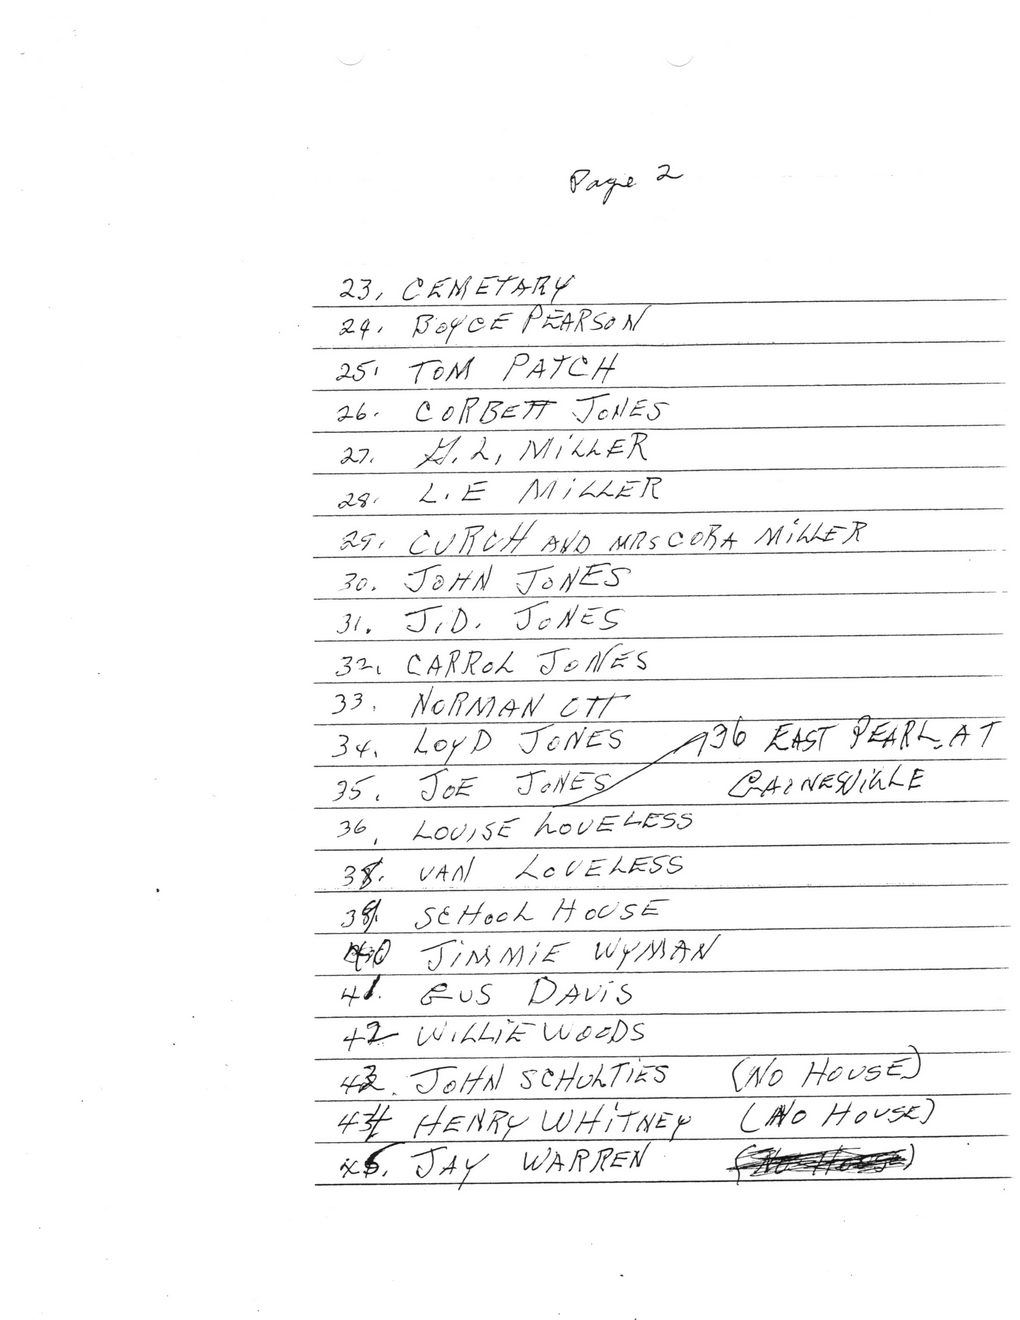 Page 2
23, CEMETARY
24. BOYCE PEARSON
25. TOM PATCH
26. CORBETT JONES
27. G. L, MiLLER
28. L. E MiLLER
29. CURCH AND MRS CORA MiLLER
30. JOHN JONES
31. J.D. JONES
32. CARROL JONES
33. NORMAN OTT
34. LOYD JONES 36 EAST PEARL. AT
35. JOE JONES GAINESVILLE
36. LOUISE LOVELESS
38. VAN LOVELESS
39. SCHOOL HOUSE
40 JiMMiE WYMAN
41. GUS DAViS
42 WiLLiE WOODS
43. JOHN SCHULTIES (NO HOUSE)
44 HENRY WHiTNEY (NO HOUSE)
45. JAY WARREN (No House)